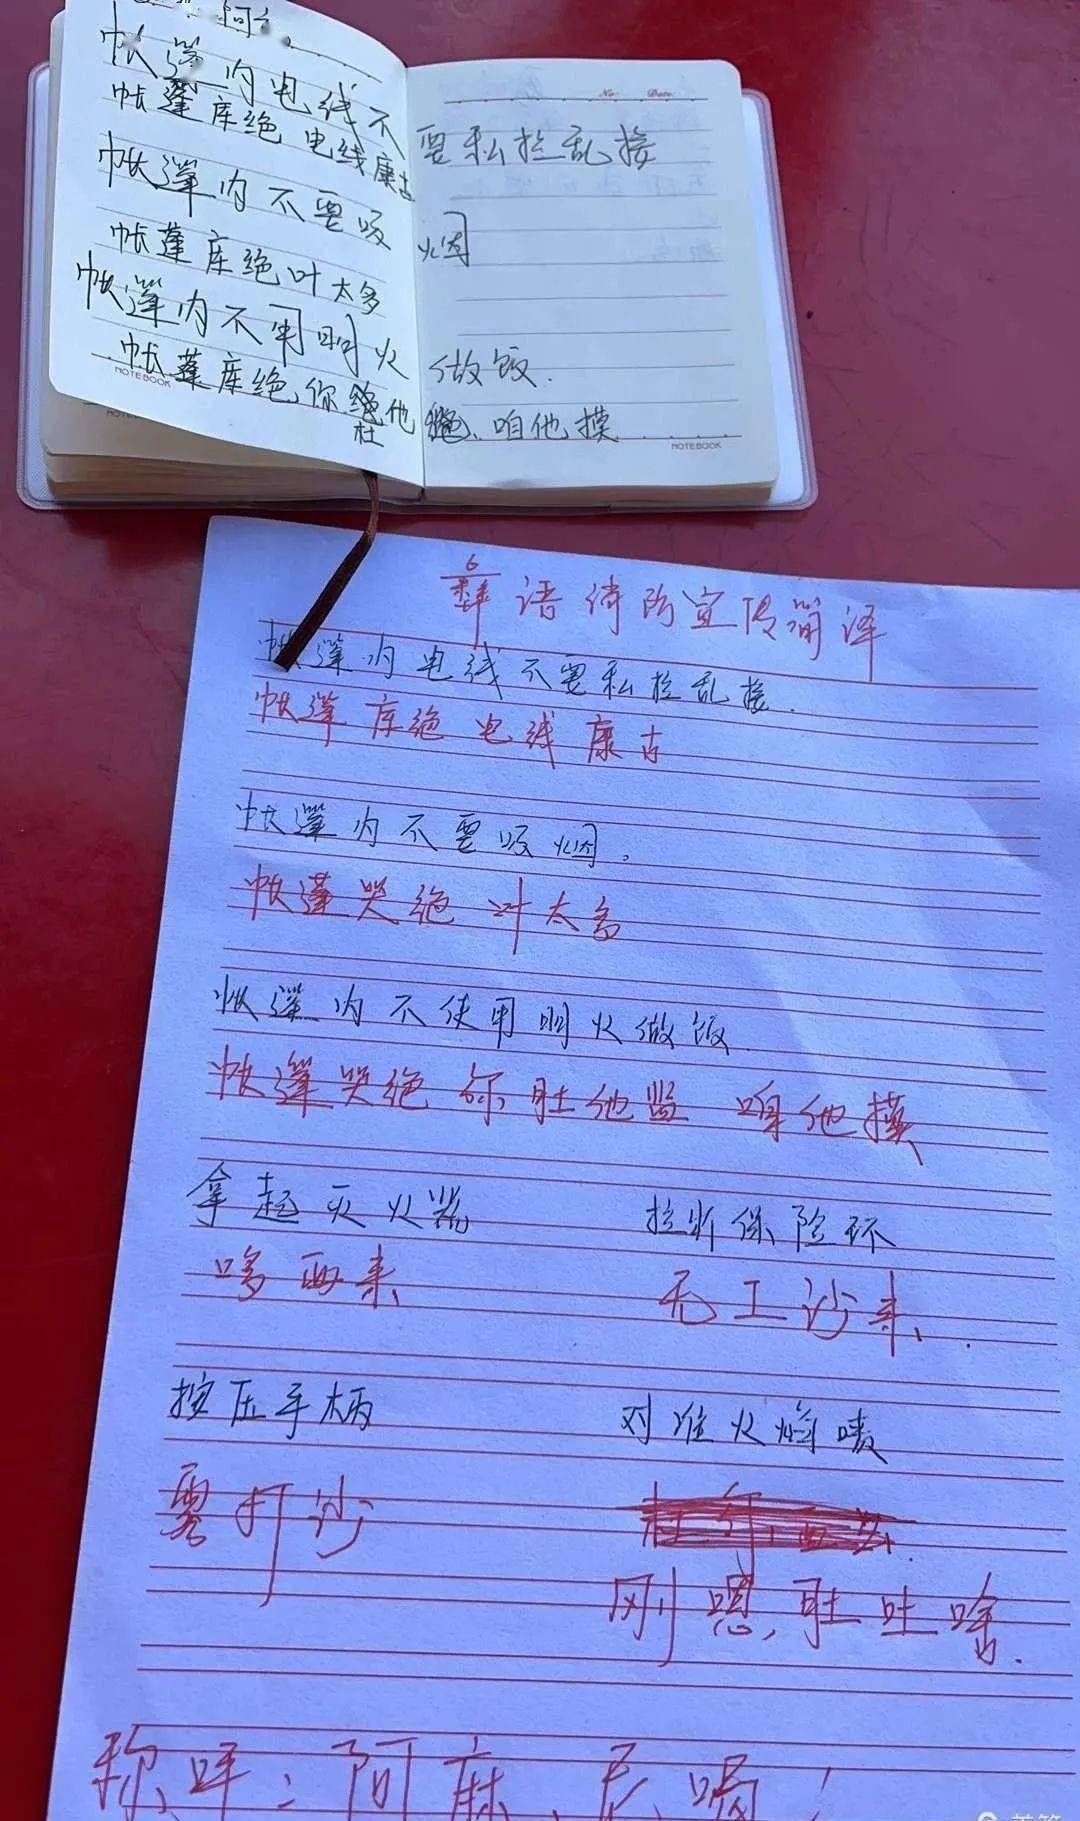 帐篷内电线不要私拉乱接
No. Date.
帐蓬库绝 电线康古
帐篷内不要吸烟
帐蓬库绝叶太多
帐篷内不用明火做饭.
帐蓬库绝你 肚他 咱他摸
NOTEBOOK
NOTEBOOK
彝语消防宣传简译
帐篷内电线不要私拉乱接.
帐篷 库绝 电线 康古
帐篷内不要吸烟.
帐蓬哭绝 叶太多
帐篷内不使用明火做饭
帐篷哭绝 你 肚他监 咱他摸
拿起灭火器 拉断保险环
哆西来 无工沙来.
按压手柄 对准火焰喷
雾打沙
刚嗯,肚吐啥.
称呼:阿麻、